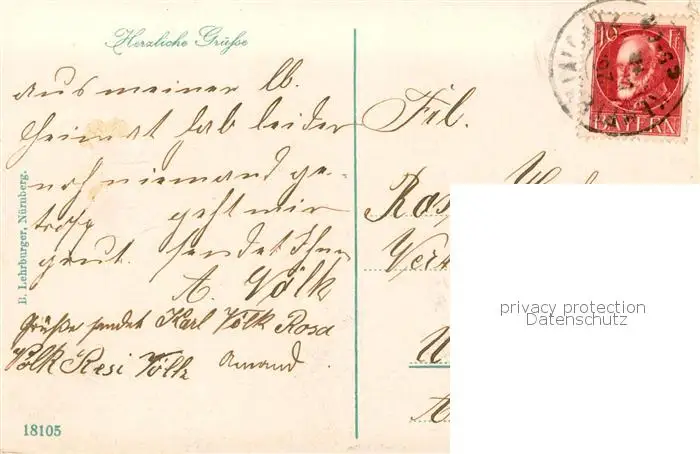 Herzliche Grüße
aus meiner lb.
Heimat hab leider
noch niemand ge-
troff geht mir
gut. sendet Ihnen
A. Völk
Grüße sendet Karl Völk Rosa
Völk Resi Völk Amand.
B. Lehrburger, Nürnberg.
18105
10 Pf
BAYERN
Frl.
Rosa
Verk
privacy protection
Datenschutz